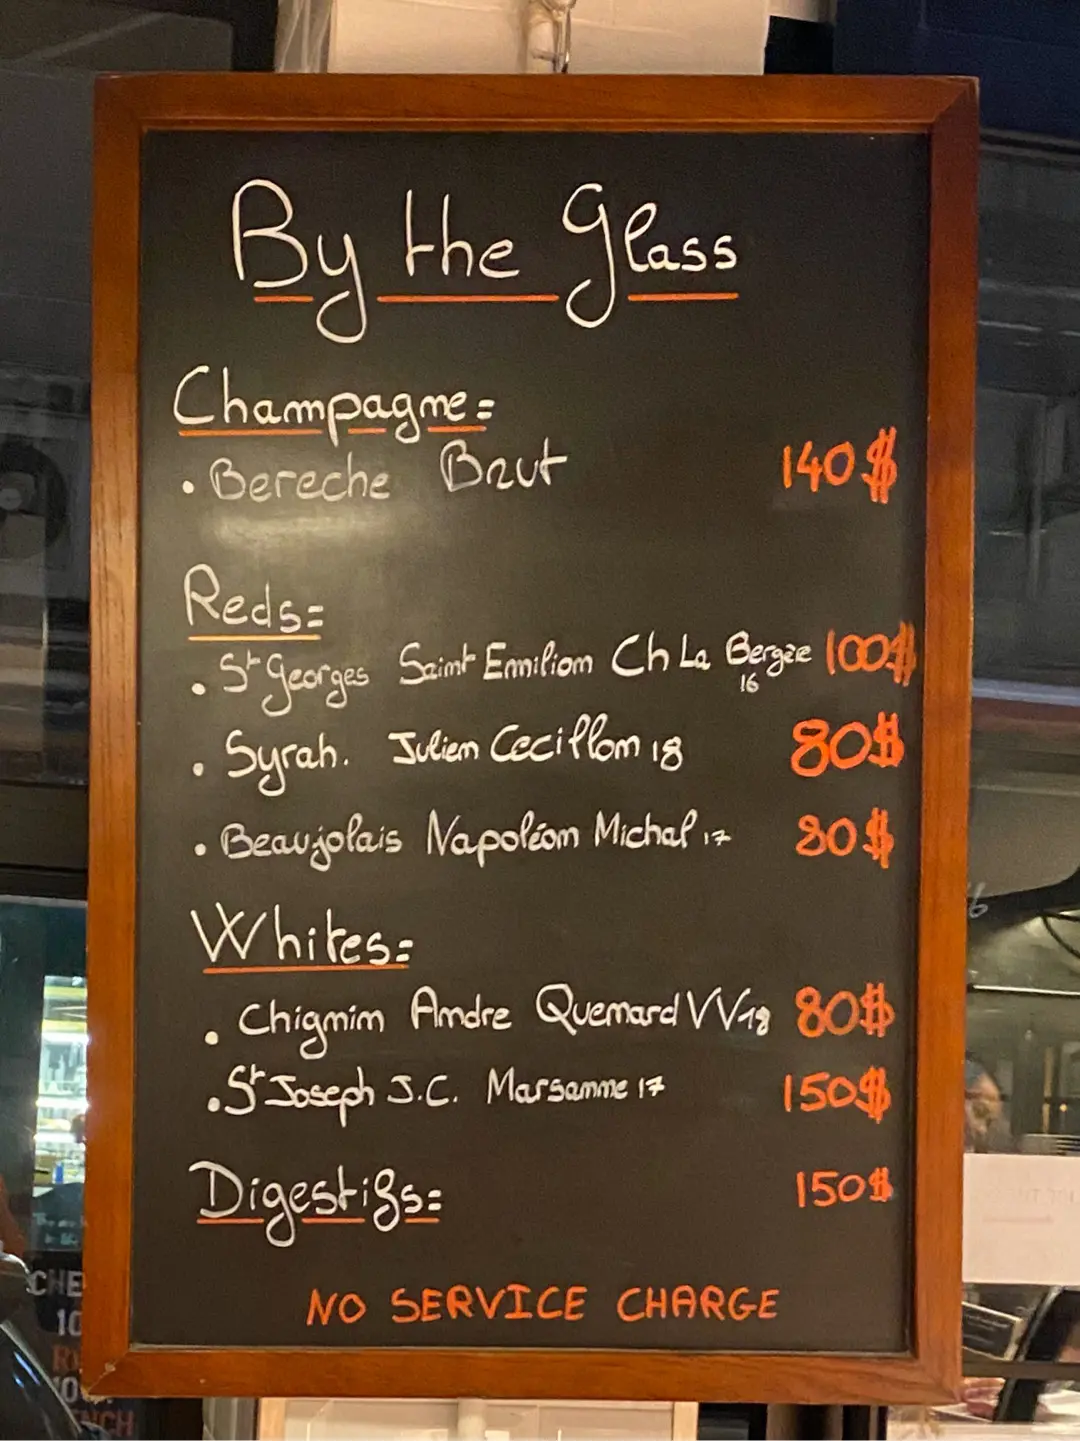 By the Glass
Champagne=
• Bereche Brut 140$
Reds=
• St Georges Saint Emilion Ch La Bergère 16 100$
• Syrah. Julien Cecillon 18 80$
• Beaujolais Napoléon Michal 17 80$
Whites=
• Chignin Andre Quenard VV 18 80$
• St Joseph J.C. Marsanne 17 150$
Digestifs= 150$
NO SERVICE CHARGE
CHE
10